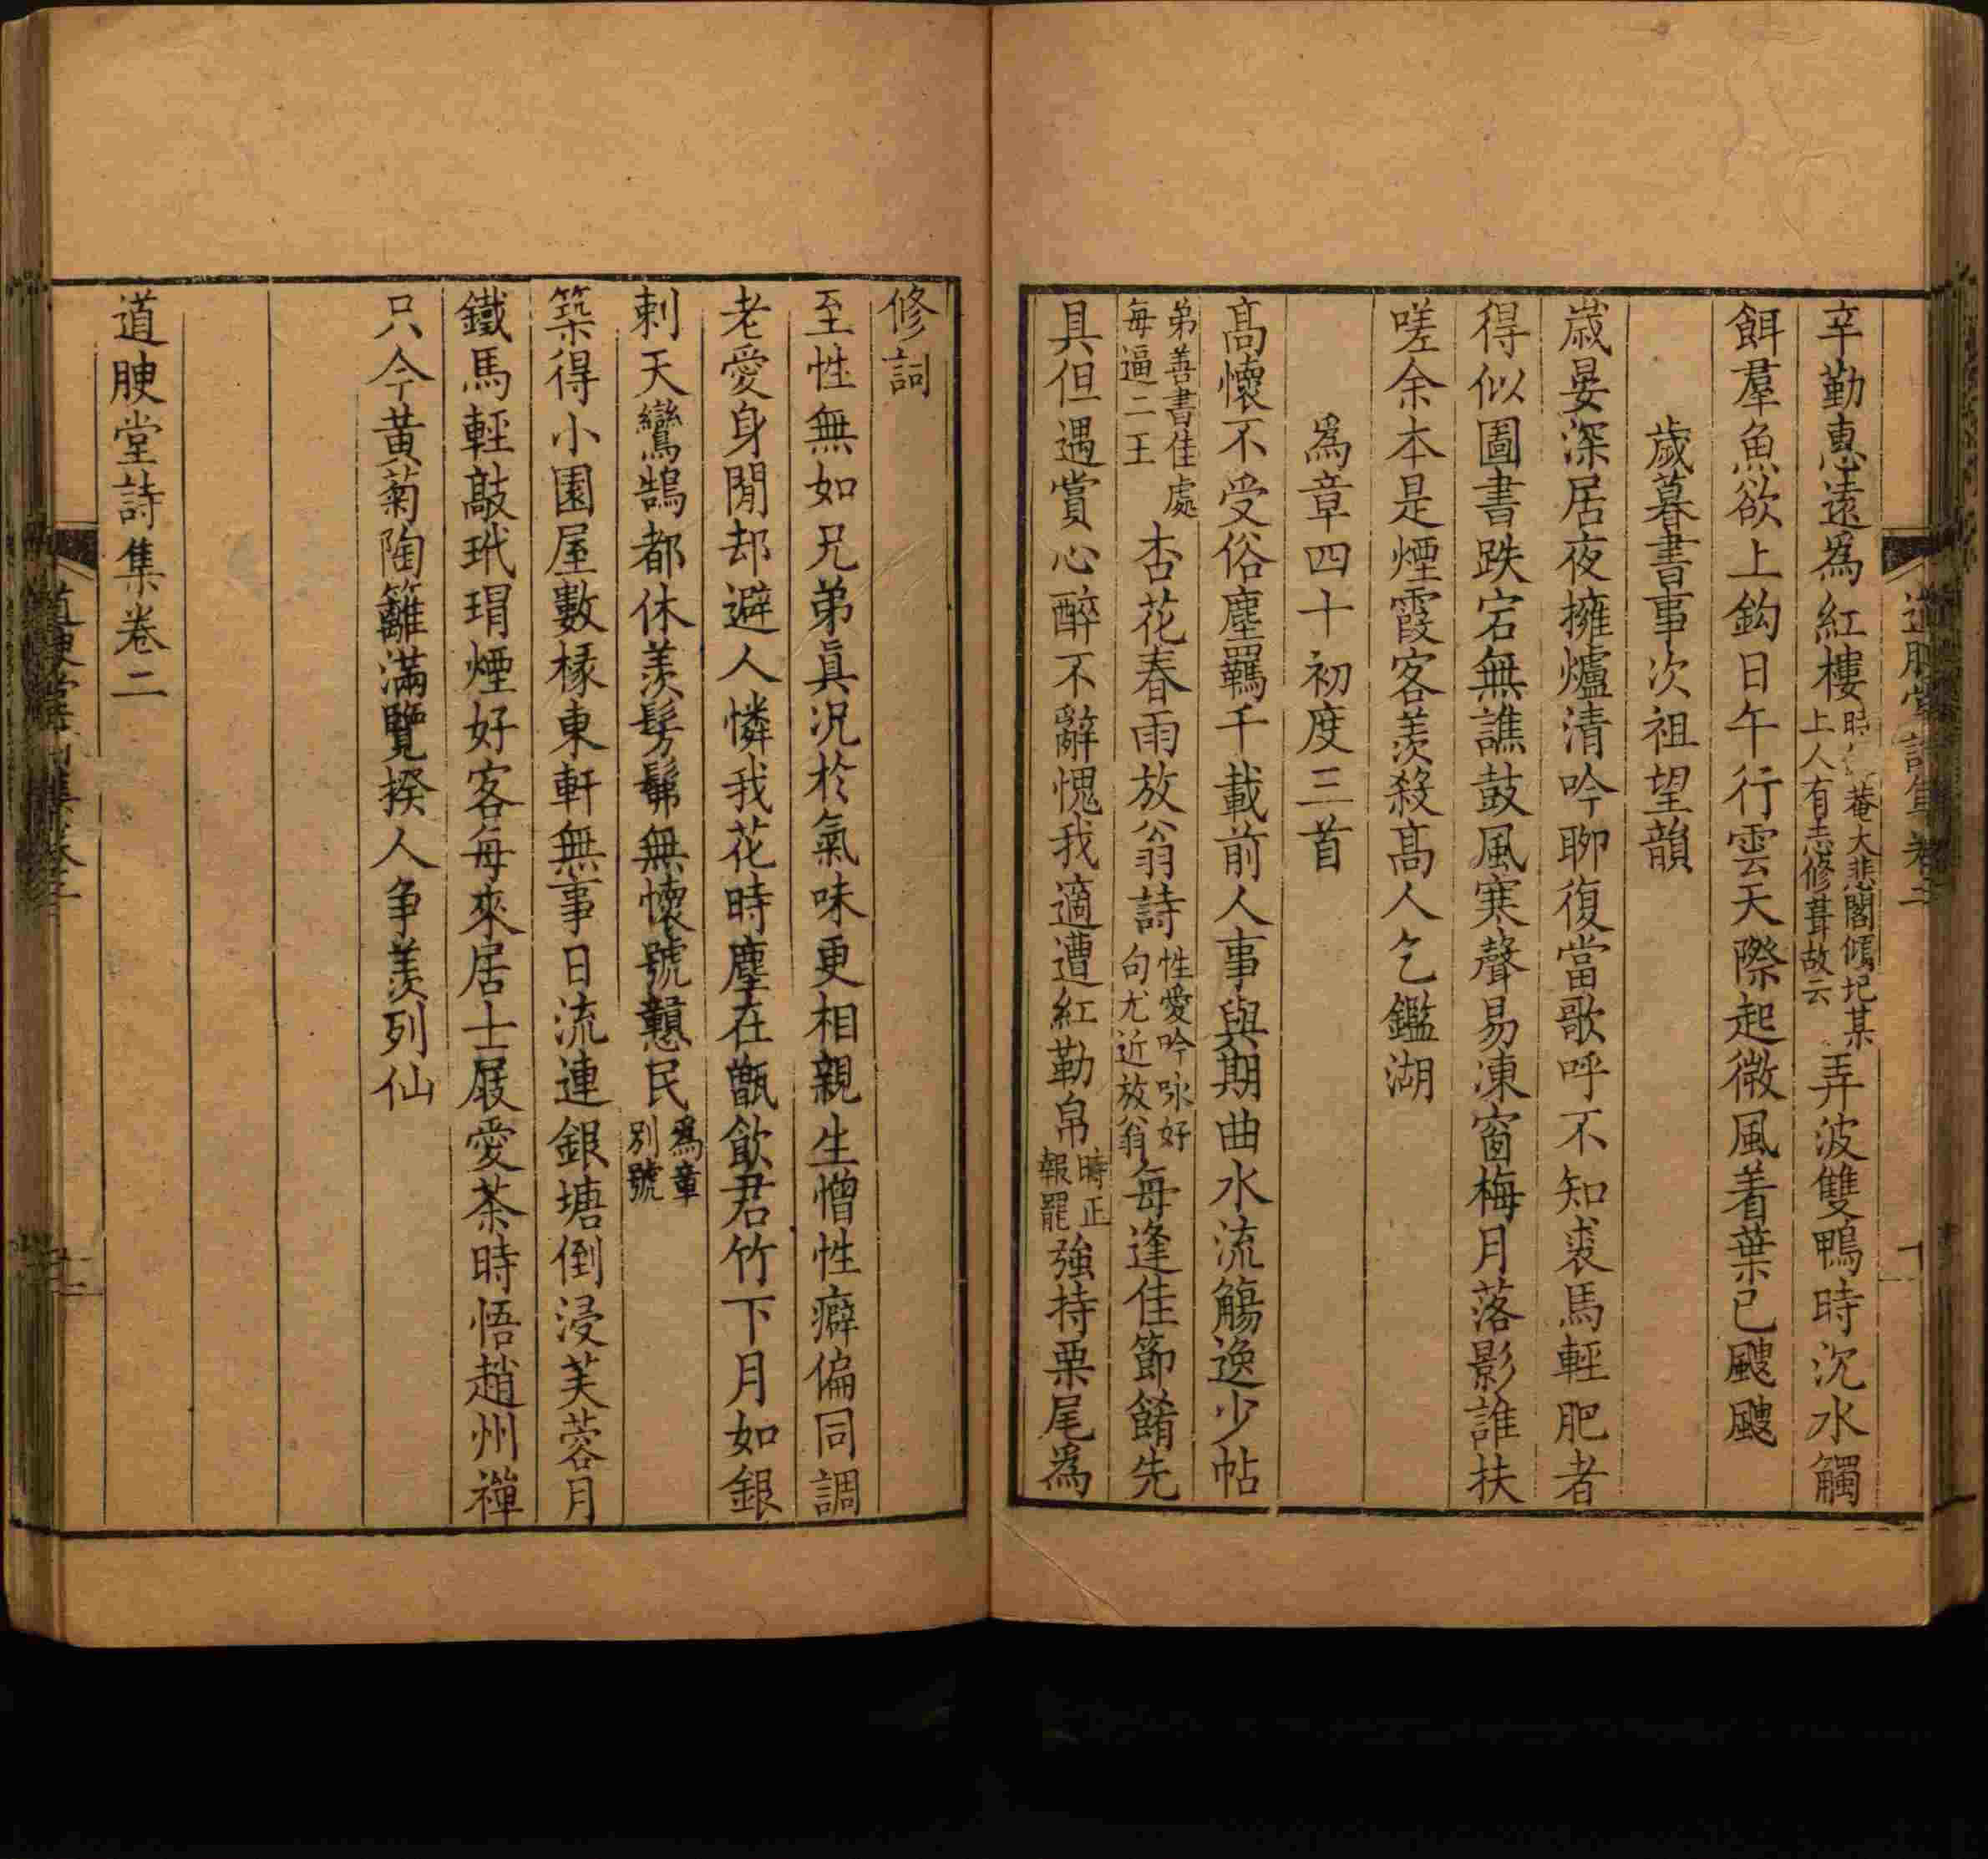 道腴堂詩集卷二
辛勤惠遠爲紅樓時 菴大悲閣傾圮某上人有志修葺故云弄波雙鴨時沉水觸
餌羣魚欲上鈎日午行雲天際起微風着葉已颼颼
歲暮書事次祖望韻
歲晏深居夜擁爐清吟聊復當歌呼不知裘馬輕肥者
得似圖書跌宕無譙鼓風寒聲易凍窗梅月落影誰扶
嗟余本是煙霞客羨殺高人乞鑑湖
爲章四十初度三首
高懷不受俗塵羈千載前人事與期曲水流觴逸少帖
弟善書佳處每逼二王杏花春雨放翁詩性愛吟咏好句尤近放翁每逢佳節餚先
具但遇賞心醉不辭愧我適遭紅勒帛時正報罷強持栗尾爲
修詞
至性無如兄弟眞况於氣味更相親生憎性癖偏同調
老愛身閒却避人憐我花時塵在甑飲君竹下月如銀
刺天鸞鵠都休羨髣髴無懷號戇民爲章別號
築得小園屋數椽東軒無事日流連銀塘倒浸芙蓉月
鐵馬輕敲玳瑁煙好客每來居士屐愛茶時悟趙州禪
只今黃菊陶籬滿覽揆人争羨列仙
道腴堂詩集卷二